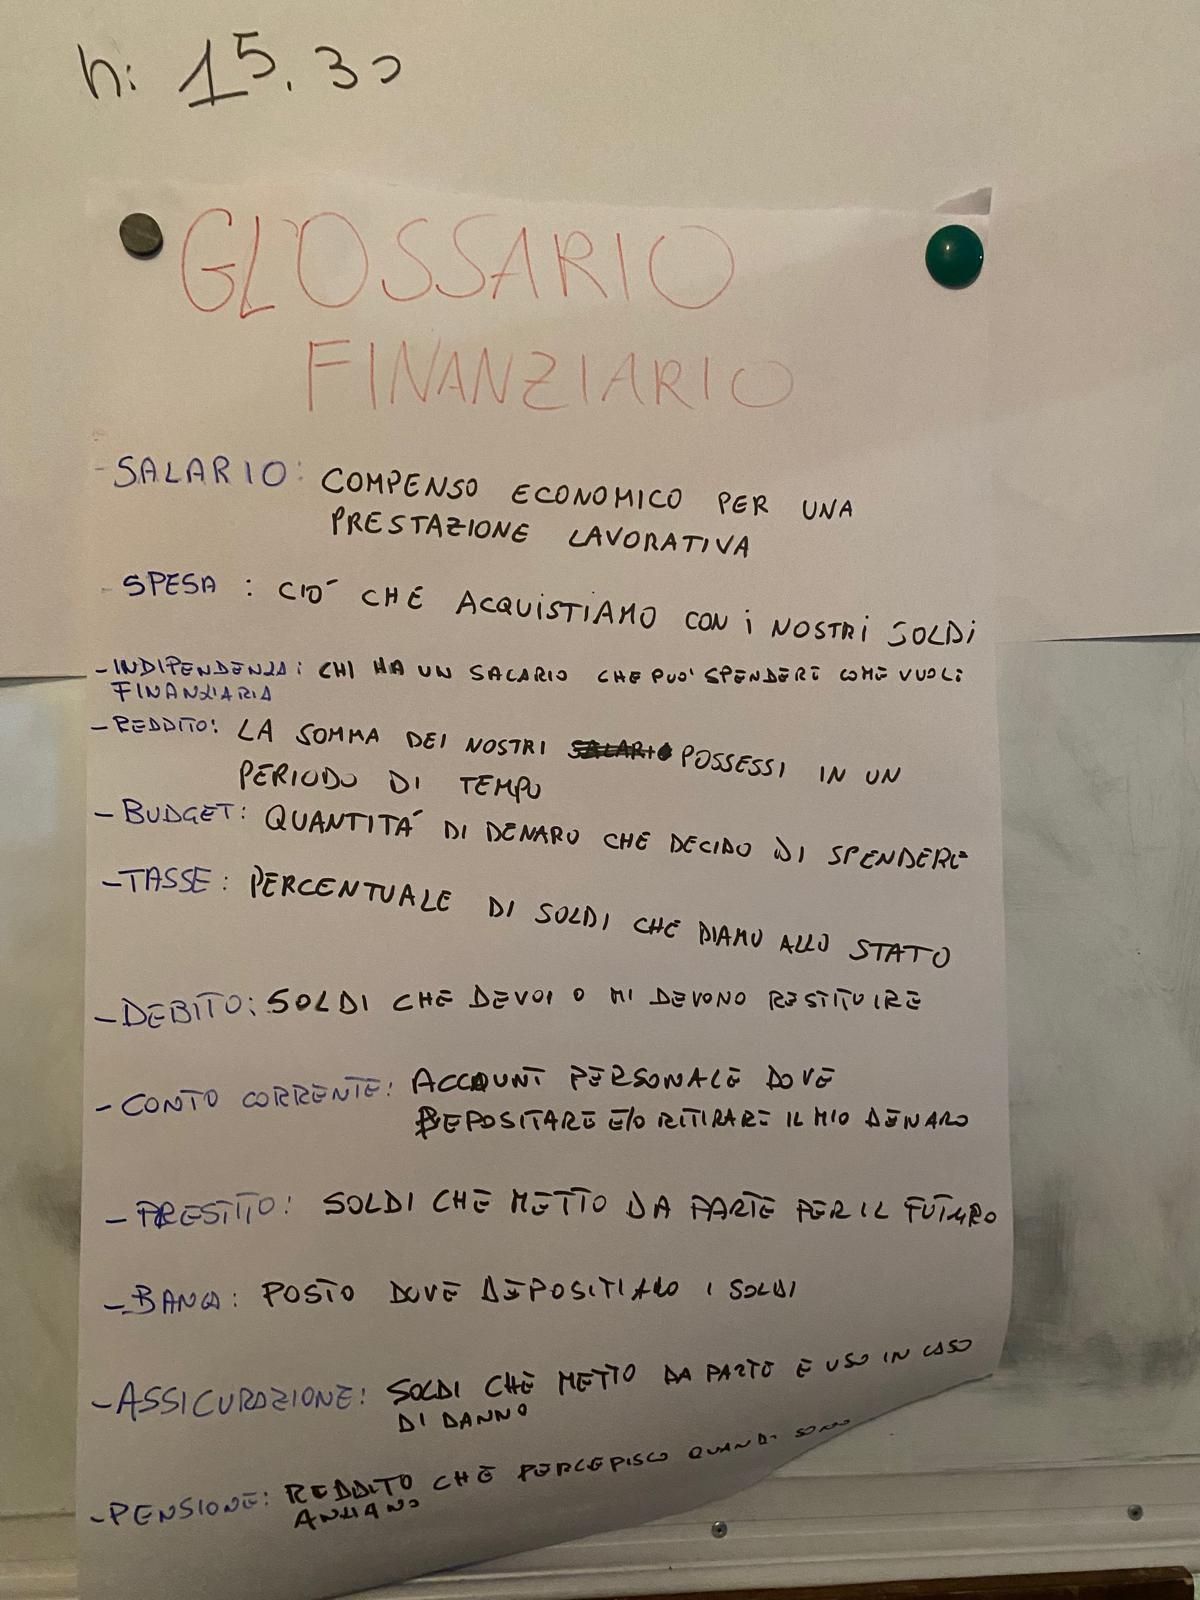 h: 15.30
GLOSSARIO
FINANZIARIO
-SALARIO: COMPENSO ECONOMICO PER UNA
PRESTAZIONE LAVORATIVA
-SPESA: CIÒ CHE ACQUISTIAMO CON I NOSTRI SOLDI
-INDIPENDENZA: CHI HA UN SALARIO CHE PUO' SPENDERE COME VUOLE
FINANZIARIA
-REDDITO: LA SOMMA DEI NOSTRI SALARIO POSSESSI IN UN
PERIODO DI TEMPO
-BUDGET: QUANTITÀ DI DENARO CHE DECIDO DI SPENDERE
-TASSE: PERCENTUALE DI SOLDI CHE DIAMO ALLO STATO
-DEBITO: SOLDI CHE DEVOI O MI DEVONO RESTITUIRE
-CONTO CORRENTE: ACCOUNT PERSONALE DOVE
DEPOSITARE E/O RITIRARE IL MIO DENARO
-PRESTITO: SOLDI CHE METTO DA PARTE PER IL FUTURO
-BANCA: POSTO DOVE DEPOSITIAMO I SOLDI
-ASSICURAZIONE: SOLDI CHE METTO DA PARTE E USO IN CASO
DI DANNO
-PENSIONE: REDDITO CHE PERCEPISCO QUANDO SONO
ANZIANO